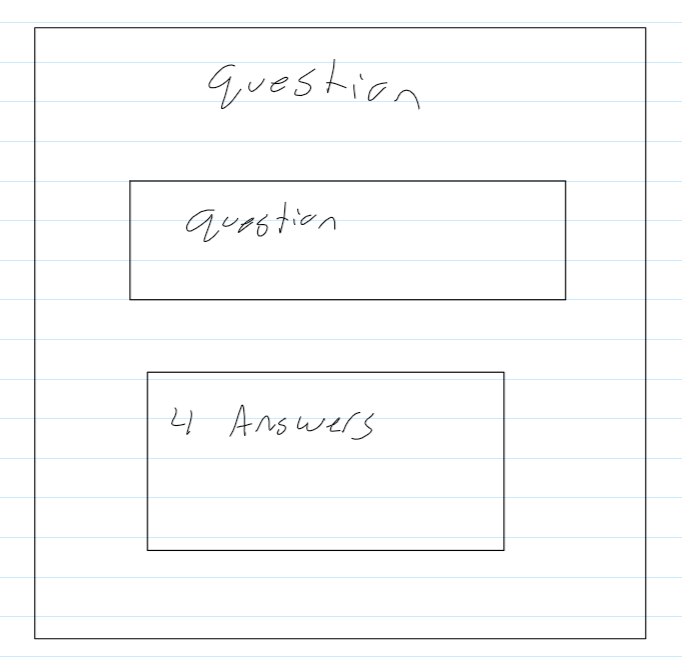 question
question
4 Answers